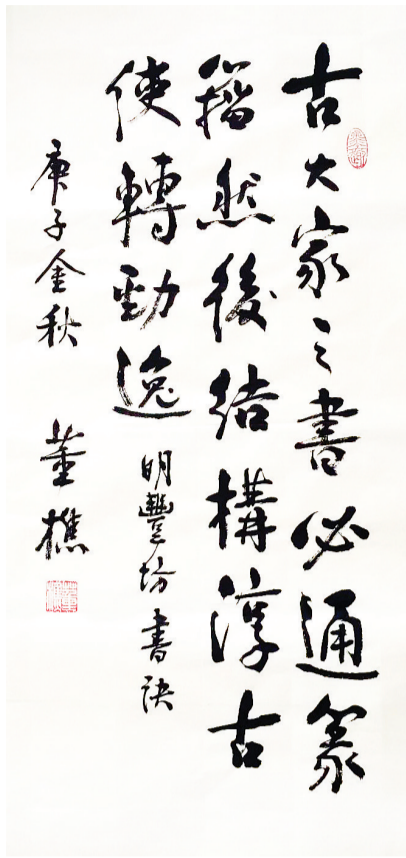 古大家之書必通篆
籀然後結構淳古
使轉勁逸
明豐坊書訣
庚子金秋
董樵